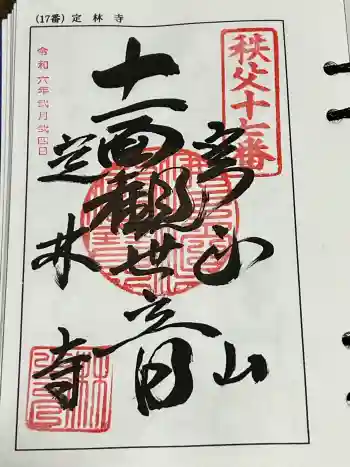 (17番) 定林寺
秩父十七番
令和六年弐月弐四日
十一面観世音
定林寺